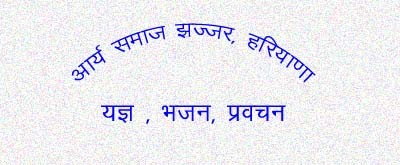 आर्य समाज झज्जर, हरियाणा
यज्ञ , भजन, प्रवचन